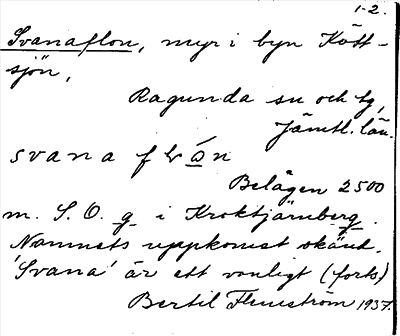 1-2.
Svanaflon, myr i byn Kött-
sjön,
Ragunda sn och tg,
Jämtl. län.
svana flón
Belägen 2500
m. S.O. g i Kroktjärnberg.
Namnets uppkomst okänd.
'Svana' är ett vanligt (forts)
Bertil Flemström 1937.